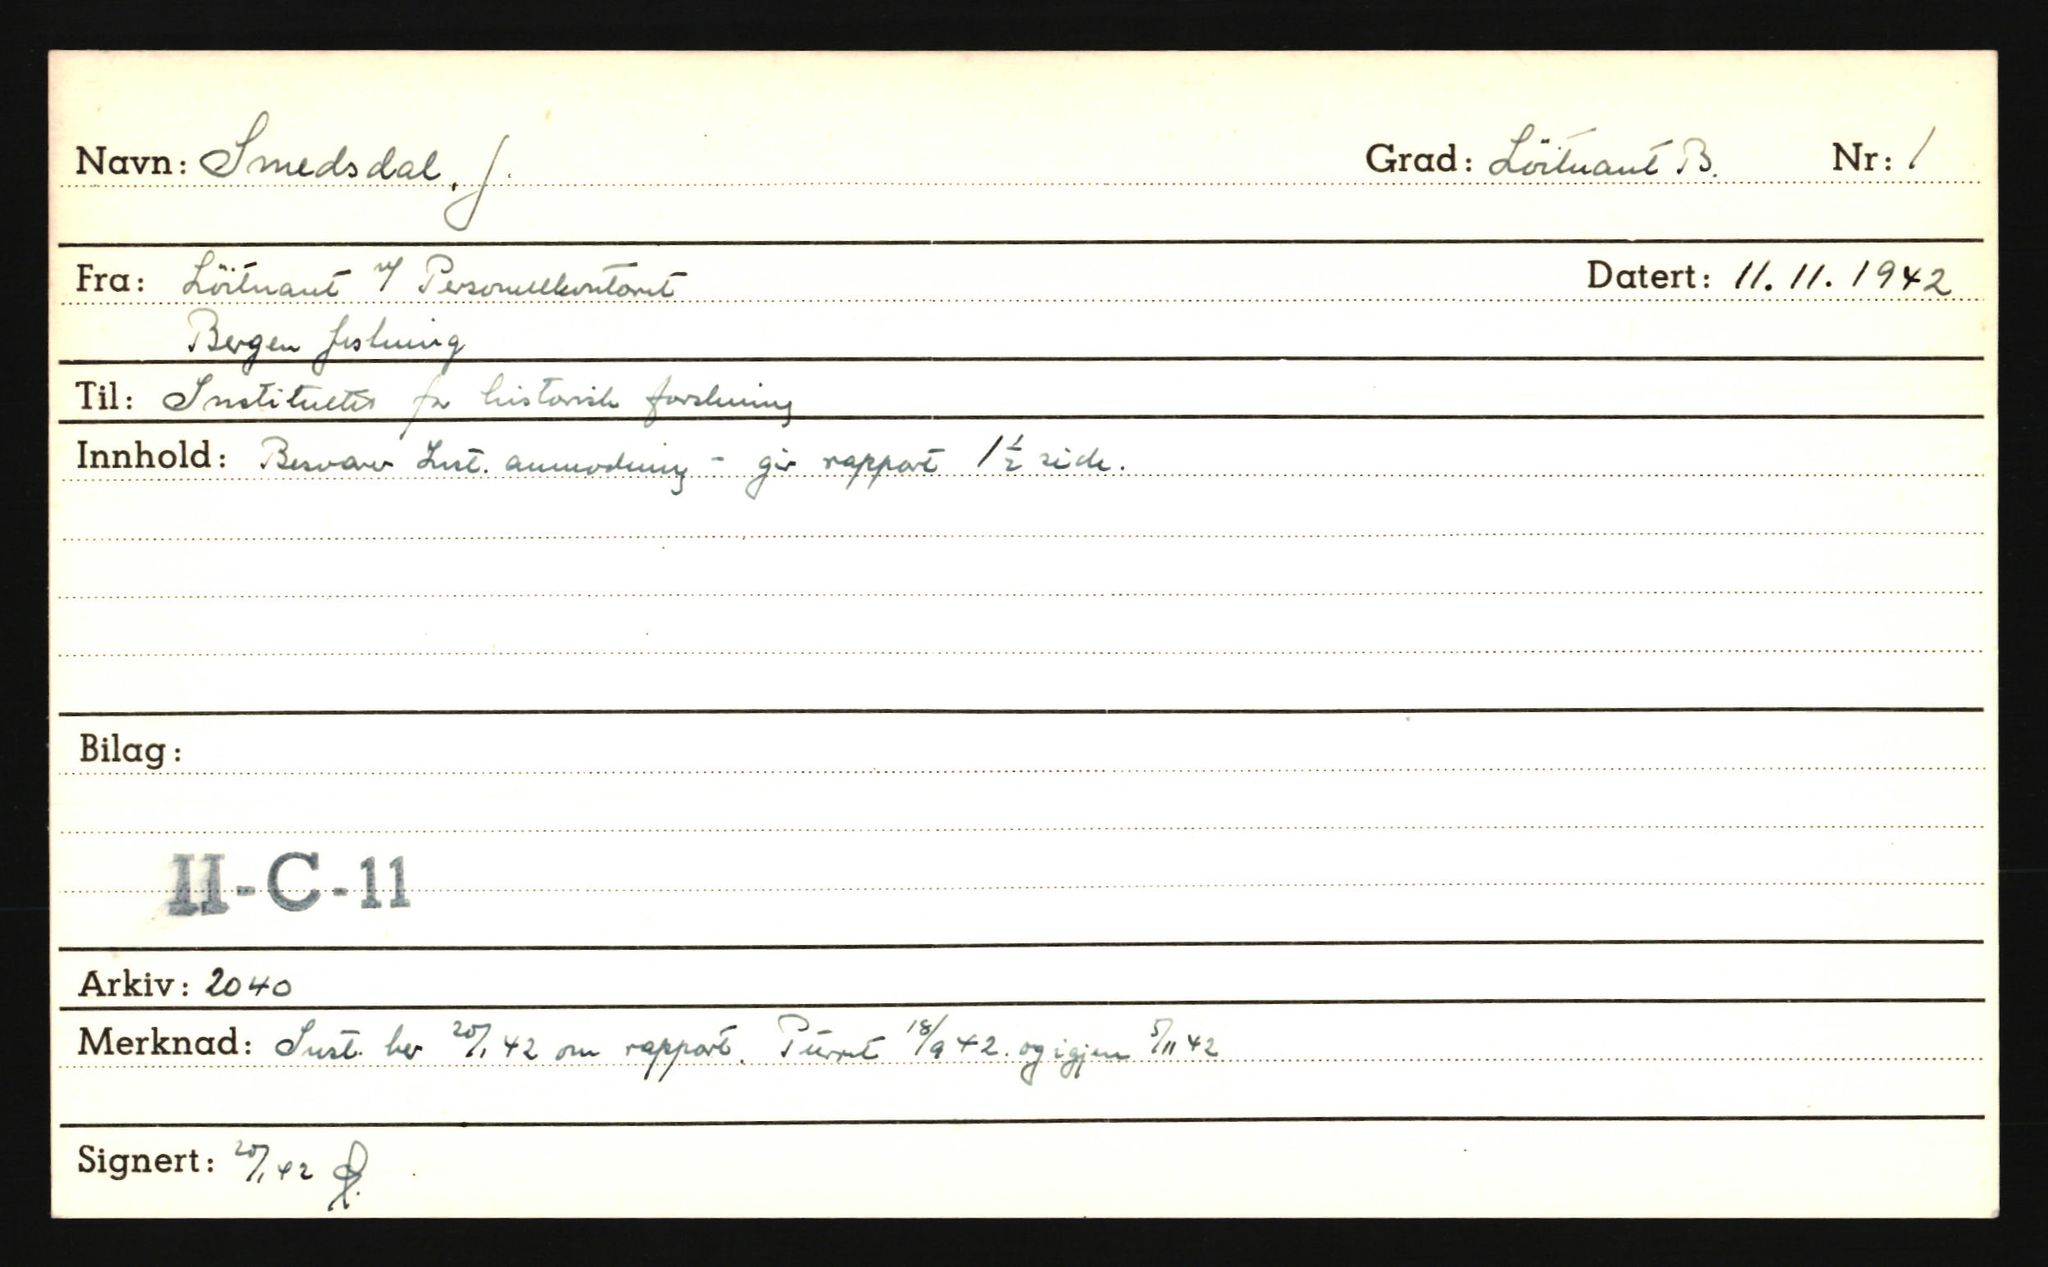 Navn: Smedsdal, J. Grad: Löitnant B. Nr: 1
Fra: Löitnant v/ Personellkontoret Datert: 11.11.1942
Bergen festning
Til: Instituttet for historisk forskning
Innhold: Besvarer Inst. anmodning - gir rapport 1½ side.
Bilag:
II-C-11
Arkiv: 2040
Merknad: Inst. ber 20/1 42 om rapport. Purret 18/9 42. og igjen 5/11 42
Signert: 20/1 42